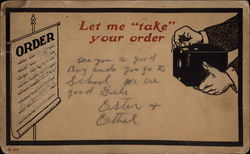 ORDER
Let me "take"
your order
are you a good
Boy and do you go to
School we are
good Girls
Ester +
Ethel